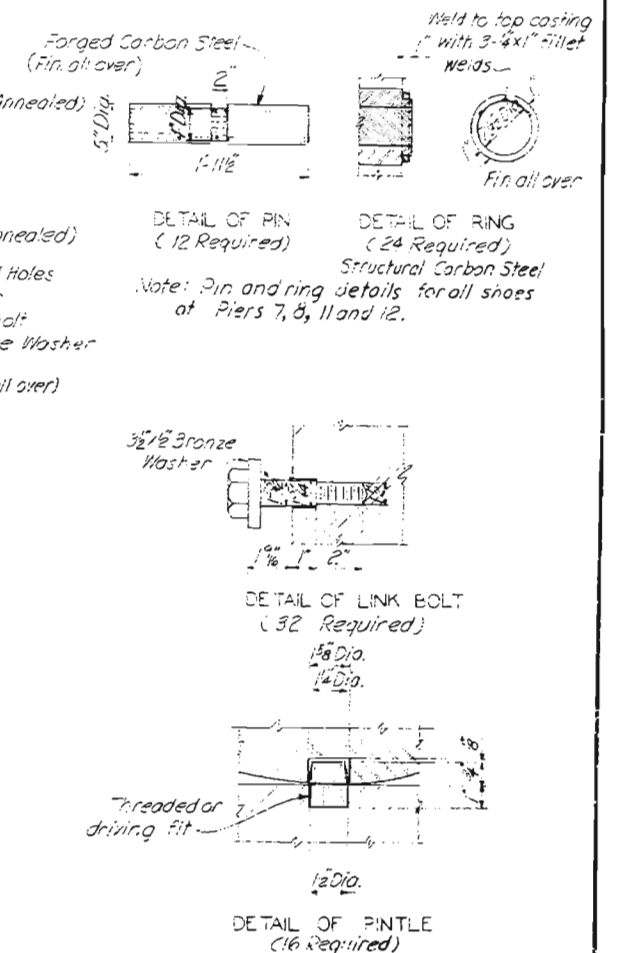 Weld to top casting
1" with 3-¼"x1" fillet
welds
Forged Carbon Steel
(Fin. all over)
2"
5" Dia.
4" Dia.
1'-11½"
Fin. all over
DETAIL OF PIN
(12 Required)
DETAIL OF RING
(24 Required)
Structural Carbon Steel
Note: Pin and ring details for all shoes
at Piers 7, 8, 11 and 12.
nnealed)
nnealed)
Holes
olt
e Washer
all over)
3½"x½" Bronze
Washer
1 9/16"
1"
2"
DETAIL OF LINK BOLT
(32 Required)
1⅝" Dia.
1¼" Dia.
Threaded or
driving fit
1½" Dia.
DETAIL OF PINTLE
(16 Required)